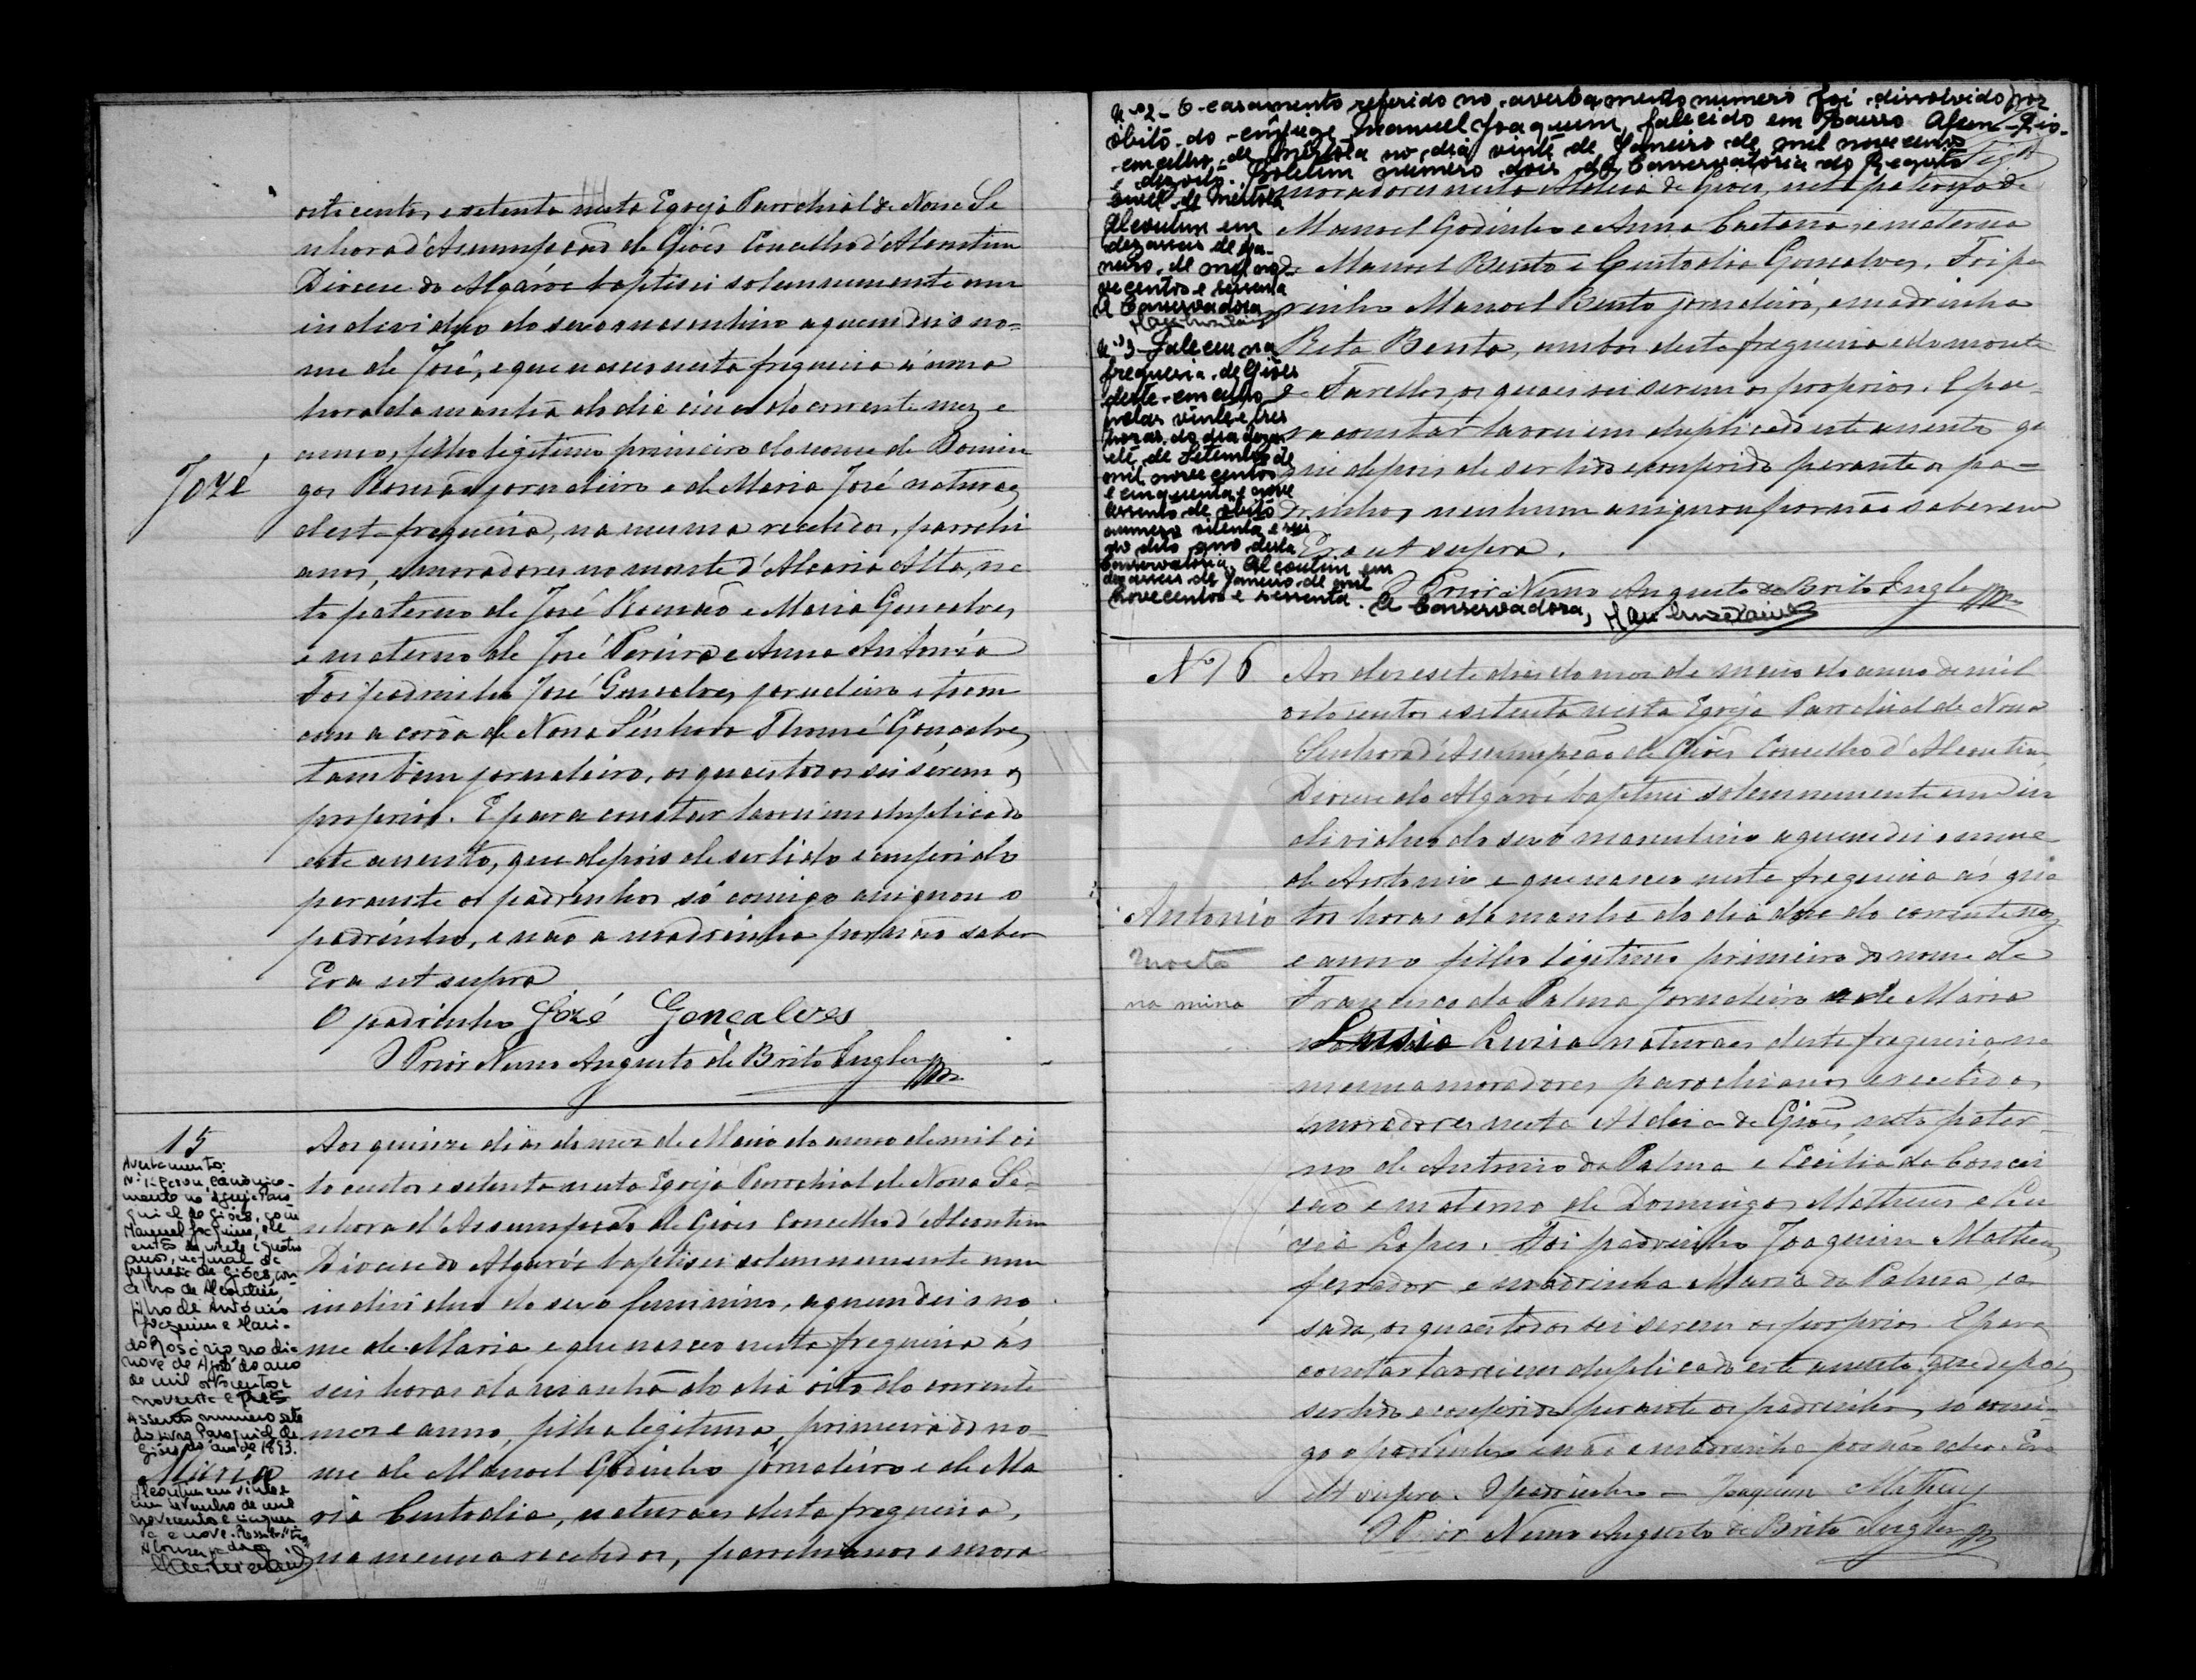 oitocentos e setenta nesta Egreja Parrochial de Nossa Se
nhora d'Assumpção de Giões Concelho d'Alcoutim
Diocese do Algarve baptisei solemnemente um
individuo do sexo masculino a quem dei o no-
me de José, e que nasceu nesta freguesia á uma
hora da manhã do dia cinco do corrente mez e
anno, filho legitimo primeiro do nome de Domin
José
gos Romão jornaleiro e de Maria José naturaes
desta freguesia, na mesma recebidos, parrochi
anos, e moradores no monte d'Alcaria Alta, ne
to paterno de José Romão e Maria Gonsalves,
e materno de José Pereira e Anna Antonia
Foi padrinho José Gonsalves, jornaleiro e
com a corôa de Nossa Senhora Thomé Gonsalves
tambem jornaleiro, os quaes todos sei serem os
proprios. E para constar lavrei em duplicado
este assento, que depois de ser lido e conferido
perante os padrinhos só comigo assignou o
padrinho, e não a madrinha por não saber
Era ut supra
O padrinho José Gonçalves
O Prior Nuno Augusto de Brito
15
Aos quinze dias do mez de Maio do anno de mil oi
tocentos e setenta nesta Egreja Parrochial de Nossa Se-
nhora d'Assumpção de Giões Concelho d'Alcoutim
Diocese do Algarve baptisei solemnemente um
individuo do sexo feminino, a quem dei o no
me de Maria, e que nasceu nesta freguesia ás
seis horas da manhã do dia oito do corrente
mez e anno, filha legitima, primeira do no-
me de Manoel Godinho jornaleiro e de Ma
ria Custodia, naturaes desta freguesia,
na mesma recebidos, parrochianos e mora
Averbamento:
Nº 1 Casou canónica-
mente na Igreja Paro
quial de Giões, com
Manuel Joaquim, de
então de vinte e quatro
anos, natural da
freguesia de Giões, con-
celho de Alcoutim,
filho de António
Joaquim e Mari-
do Rosário no dia
nove de do ano
de mil oitocentos e
noventa e três
Assento número sete
do livro Paroquial de
Giões do ano de 1893.
Maria
Alcoutim em vinte e
um de de mil
novecentos e cinquen
ta e nove.
A Conservadora
Nº 2 - O casamento referido no averbamento numero foi dissolvido por
óbito do cônjuge Manuel Joaquim, falecido em Bairro Alem-Rio-
concelho de Mértola no dia vinte de Janeiro de mil novecentos
e dezoito. Boletim numero dois da Conservatória do Registo
Civil de Mértola
Alcoutim em
dezasseis de Ja-
neiro de mil no-
vecentos e sessenta
A Conservadora
Nº 3 - Faleceu na
freguesia de Giões
deste concelho
pelas vinte e três
horas do dia dezas
sete de Setembro de
mil novecentos
e cinquenta e nove
assento de óbito
numero oitenta e seis
do dito ano desta
Conservatória. Alcoutim em
dezasseis de Janeiro de mil
novecentos e sessenta. A Conservadora,
moradores nesta Aldeia de Giões, neta paterna de
Manoel Godinho e Anna Caetana, e materna
de Manoel Bento e Custodia Gonsalves. Foi pa
drinho Manoel Bento jornaleiro, e madrinha
Rita Bento, ambos desta freguesia e do monte
de Farellos, os quaes sei serem os proprios. E pa-
ra constar lavrei em duplicado este assento
que depois de ser lido e conferido perante os pa-
drinhos, nenhum assignou por não saberem
Era ut supra.
O Prior Nuno Augusto de Brito
Nº 16
Aos desesete dias do mez de maio do anno de mil
oitocentos e setenta nesta Egreja Parrochial de Nossa
Senhora d'Assumpção de Giões Concelho d'Alcoutim
Diocese do Algarve baptisei solemnemente um in
dividuo do sexo masculino a quem dei o nome
de Antonio e que nasceu nesta freguesia ás qua
Antonio
tro horas da manhã do dia doze do corrente mez
Morto
e anno filho legitimo primeiro do nome de
na mina
Francisco da Palma Jornaleiro e de Maria
Luzia naturaes desta freguesia, na
mesma moradores parochianos e recebidos
moradores nesta Aldeia de Giões, neto pater-
no de Antonio da Palma e Cecilia da Concei
ção e materno de Domingos Matheus e Lu
zia Lopes. Foi padrinho Joaquim Matheus
ferrador e madrinha Maria da Palma, ca
sada, os quaes todos sei serem os proprios. E para
constar lavrei em duplicado este assento, que depois
ser lido e conferido perante os padrinhos, só comi-
go o padrinho e não a madrinha por não saber. Era
ut supra. O padrinho - Joaquim Matheus
O Prior Nuno Augusto de Brito